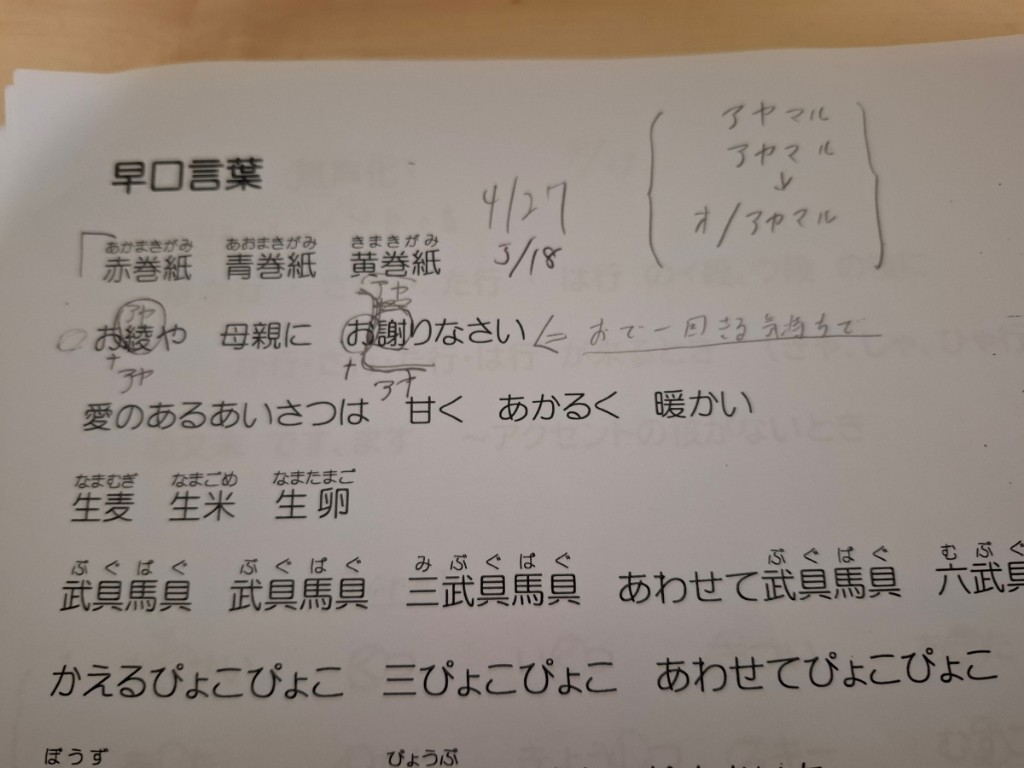 早口言葉
アヤマル
アヤマル
↓
オ/アヤマル
4/27
5/18
あかまきがみ あおまきがみ きまきがみ
赤巻紙 青巻紙 黄巻紙
アヤ アヤ
お綾や 母親に お謝りなさい ⇐ おで一回きる気持ちで
アヤ ア
愛のあるあいさつは 甘く あかるく 暖かい
なまむぎ なまごめ なまたまご
生麦 生米 生卵
ぶぐばぐ ぶぐばぐ みぶぐばぐ ぶぐばぐ むぶぐ
武具馬具 武具馬具 三武具馬具 あわせて武具馬具 六武具
かえるぴょこぴょこ 三ぴょこぴょこ あわせてぴょこぴょこ
ぼうず びょうぶ